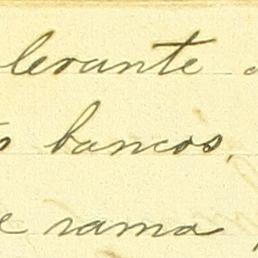 levante
bancos.
rama